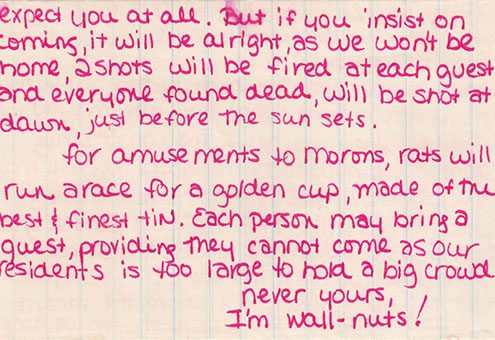 expect you at all. But if you insist on
coming, it will be alright, as we won't be
home, 2 shots will be fired at each guest
and everyone found dead, will be shot at
dawn, just before the sun sets.
for amusements to morons, rats will
run a race for a golden cup, made of the
best & finest tin. Each person may bring a
guest, providing they cannot come as our
residents is too large to hold a big crowd
never yours,
I'm wall-nuts!